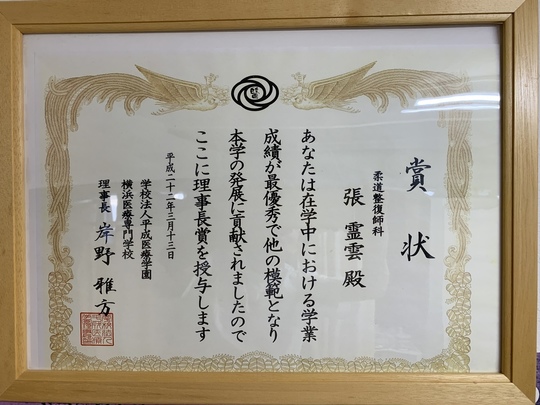 賞状
柔道整復師科
張霊雲殿
あなたは在学中における学業
成績が最優秀で他の模範となり
本学の発展に貢献されましたので
ここに理事長賞を授与します
平成二十二年三月十三日
学校法人平成医療学園
横浜医療専門学校
理事長 岸野雅方